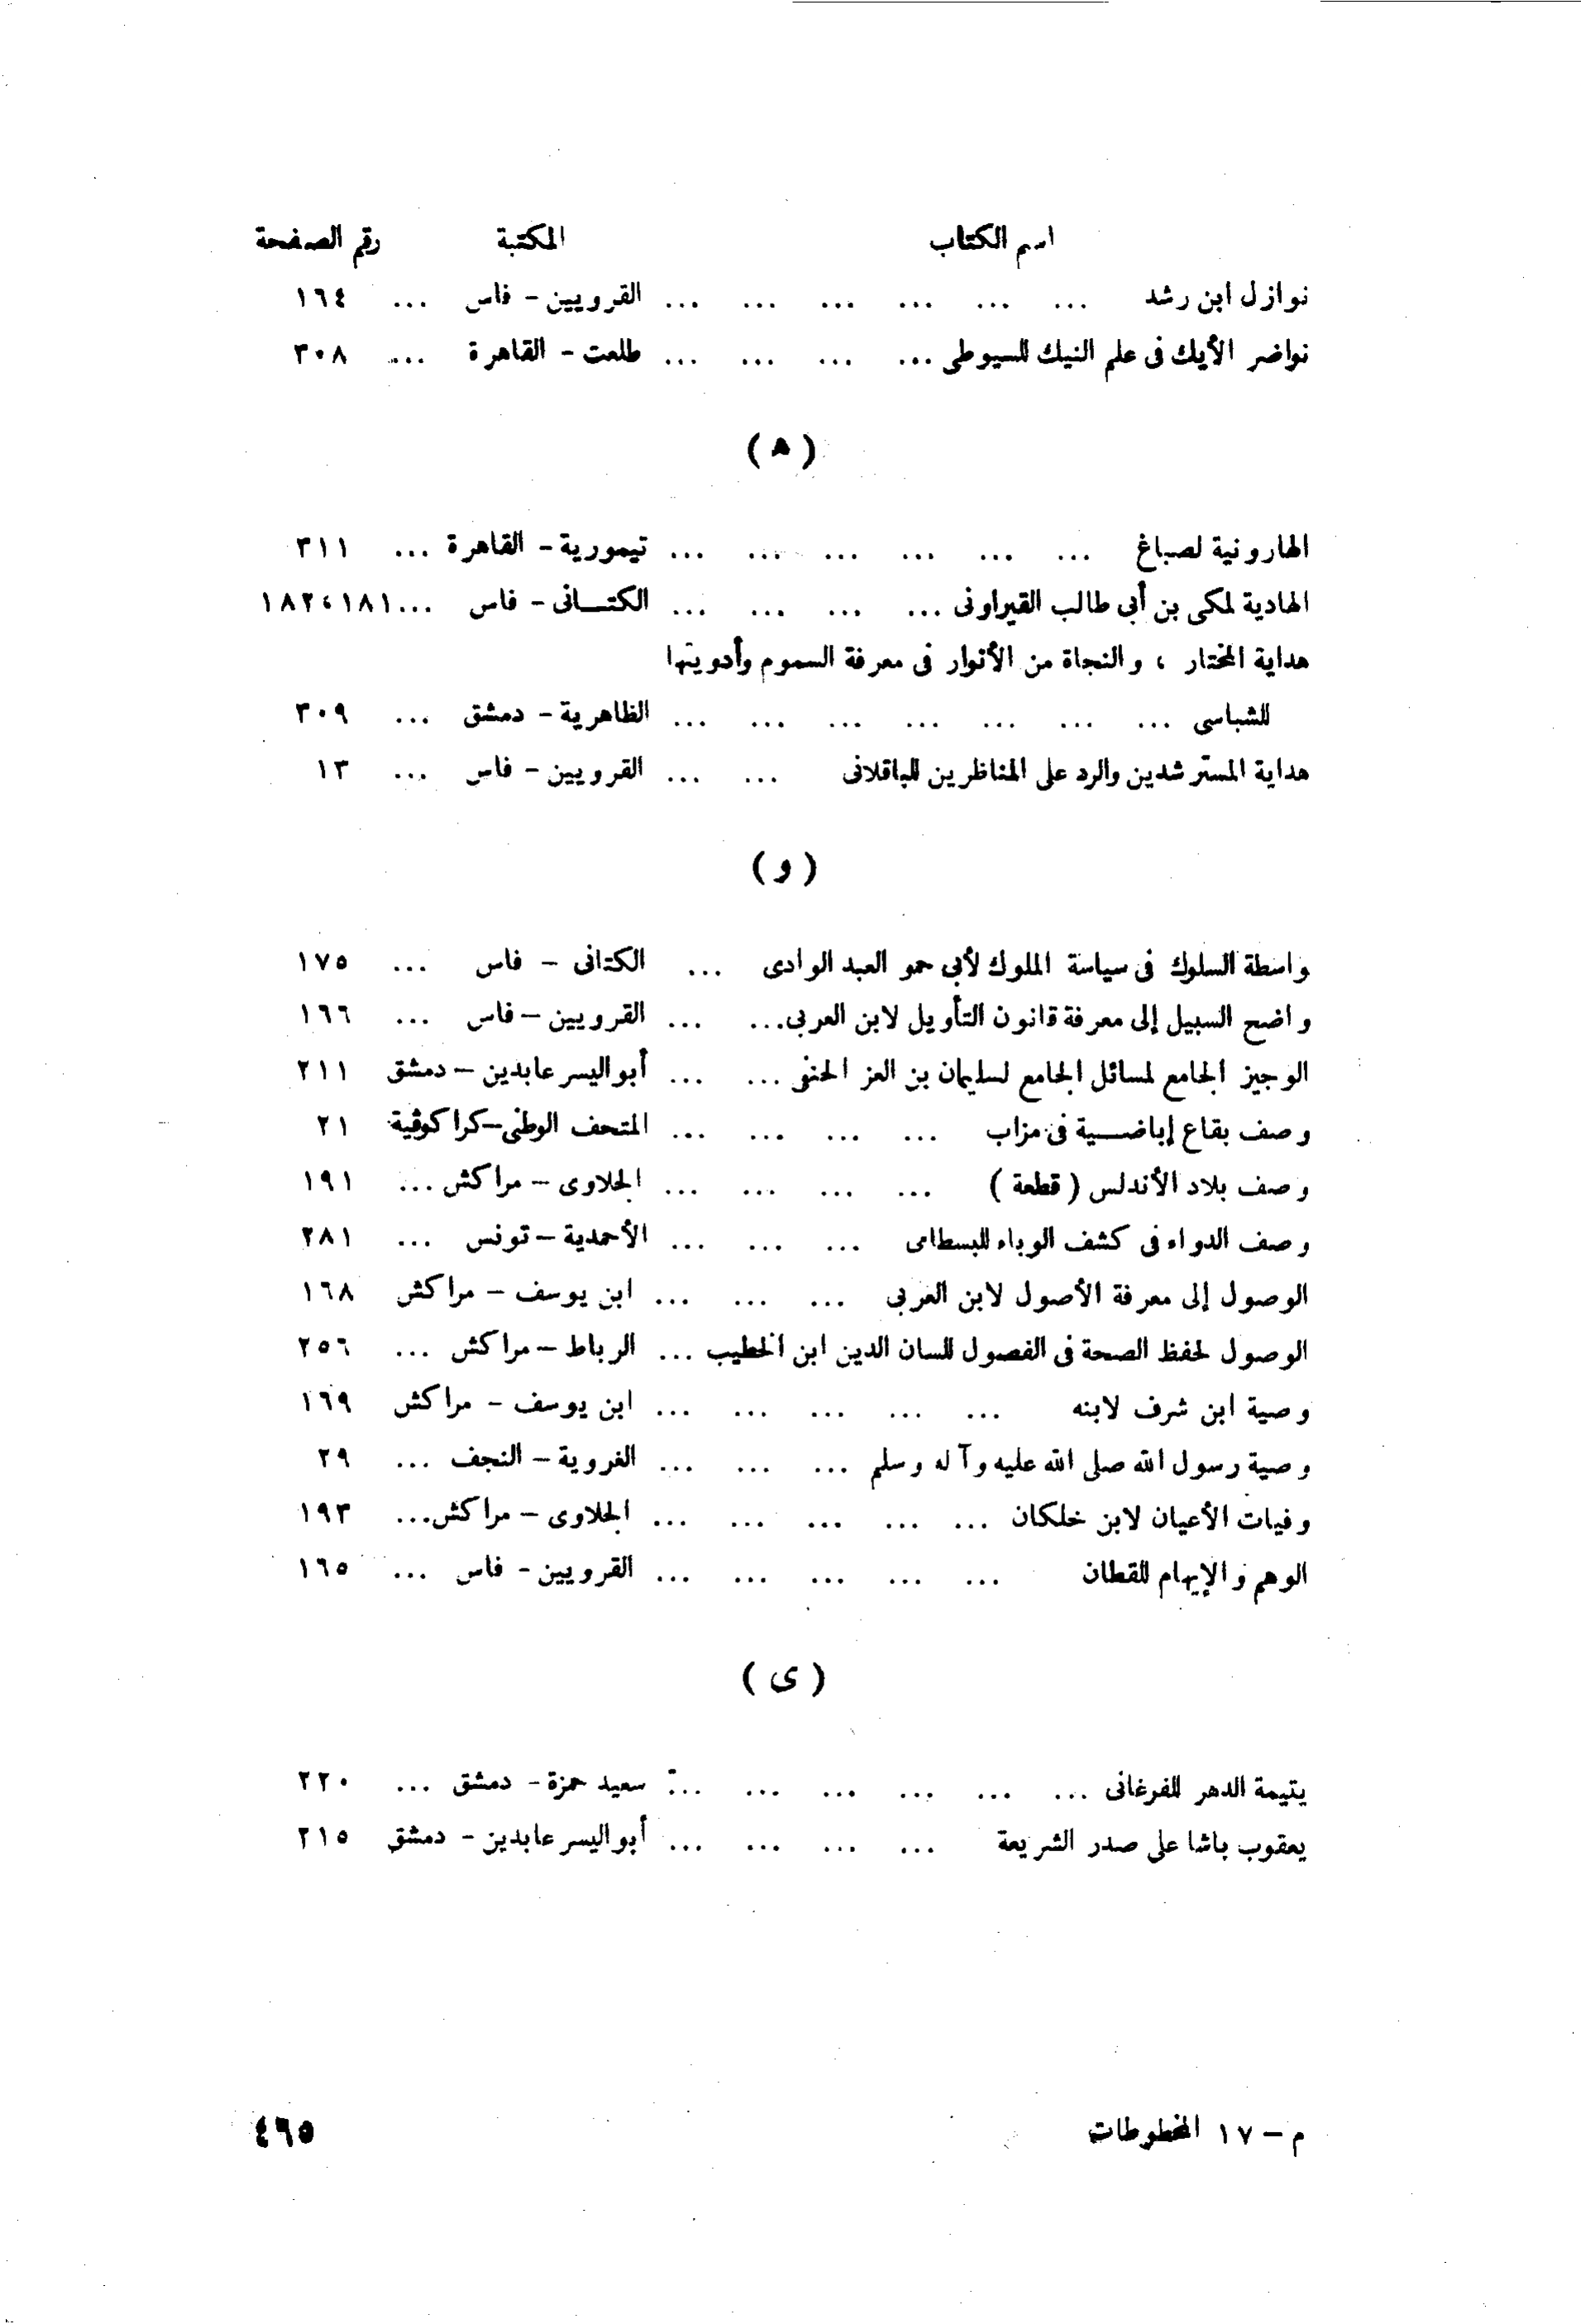 اسم الكتاب المكتبة رقم الصفحة
نوازل ابن رشد ... ... ... ... ... ... القرويين - فاس ... ١٦٤
نواضر الأيك فى علم النيك للسيوطى ... ... ... ... طلعت - القاهرة ... ٣٠٨
( ه )
الهارونية لصباغ ... ... ... ... ... ... تيمورية - القاهرة ... ٣١١
الهادية لمكى بن أبى طالب القيراونى ... ... ... ... الكتانى - فاس ... ١٨١ ، ١٨٢
هداية المختار ، والنجاة من الأنوار فى معرفة السموم وأدويتها
للشباسى ... ... ... ... ... ... ... الظاهرية - دمشق ... ٣٠٩
هداية المسترشدين والرد على المناظرين للباقلانى ... ... القرويين - فاس ... ١٣
( و )
واسطة السلوك فى سياسة الملوك لأبى حمو العبد الوادى ... الكتانى - فاس ... ١٧٥
واضح السبيل إلى معرفة قانون التأويل لابن العربى ... ... القرويين - فاس ... ١٦٦
الوجيز الجامع لمسائل الجامع لسليمان بن العز الحنفى ... ... أبو اليسر عابدين - دمشق ٢١١
وصف بقاع إباضية فى مزاب ... ... ... ... المتحف الوطنى - كراكوڤية ٢١
وصف بلاد الأندلس ( قطعة ) ... ... ... ... الجلاوى - مراكش ... ١٩١
وصف الدواء فى كشف الوباء للبسطامى ... ... ... الأحمدية - تونس ... ٢٨١
الوصول إلى معرفة الأصول لابن العربى ... ... ... ابن يوسف - مراكش ١٦٨
الوصول لحفظ الصحة فى الفصول للسان الدين ابن الخطيب ... الرباط - مراكش ... ٢٥٦
وصية ابن شرف لابنه ... ... ... ... ... ابن يوسف - مراكش ١٦٩
وصية رسول الله صلى الله عليه وآله وسلم ... ... ... الغروية - النجف ... ٢٩
وفيات الأعيان لابن خلكان ... ... ... ... ... الجلاوى - مراكش ... ١٩٣
الوهم والإيهام للقطان ... ... ... ... ... القرويين - فاس ... ١٦٥
( ى )
يتيمة الدهر للفرغانى ... ... ... ... ... ... سعيد حمزة - دمشق ... ٢٢٠
يعقوب باشا على صدر الشريعة ... ... ... ... أبو اليسر عابدين - دمشق ٢١٥
م - ١٧ المخطوطات ٤٦٥